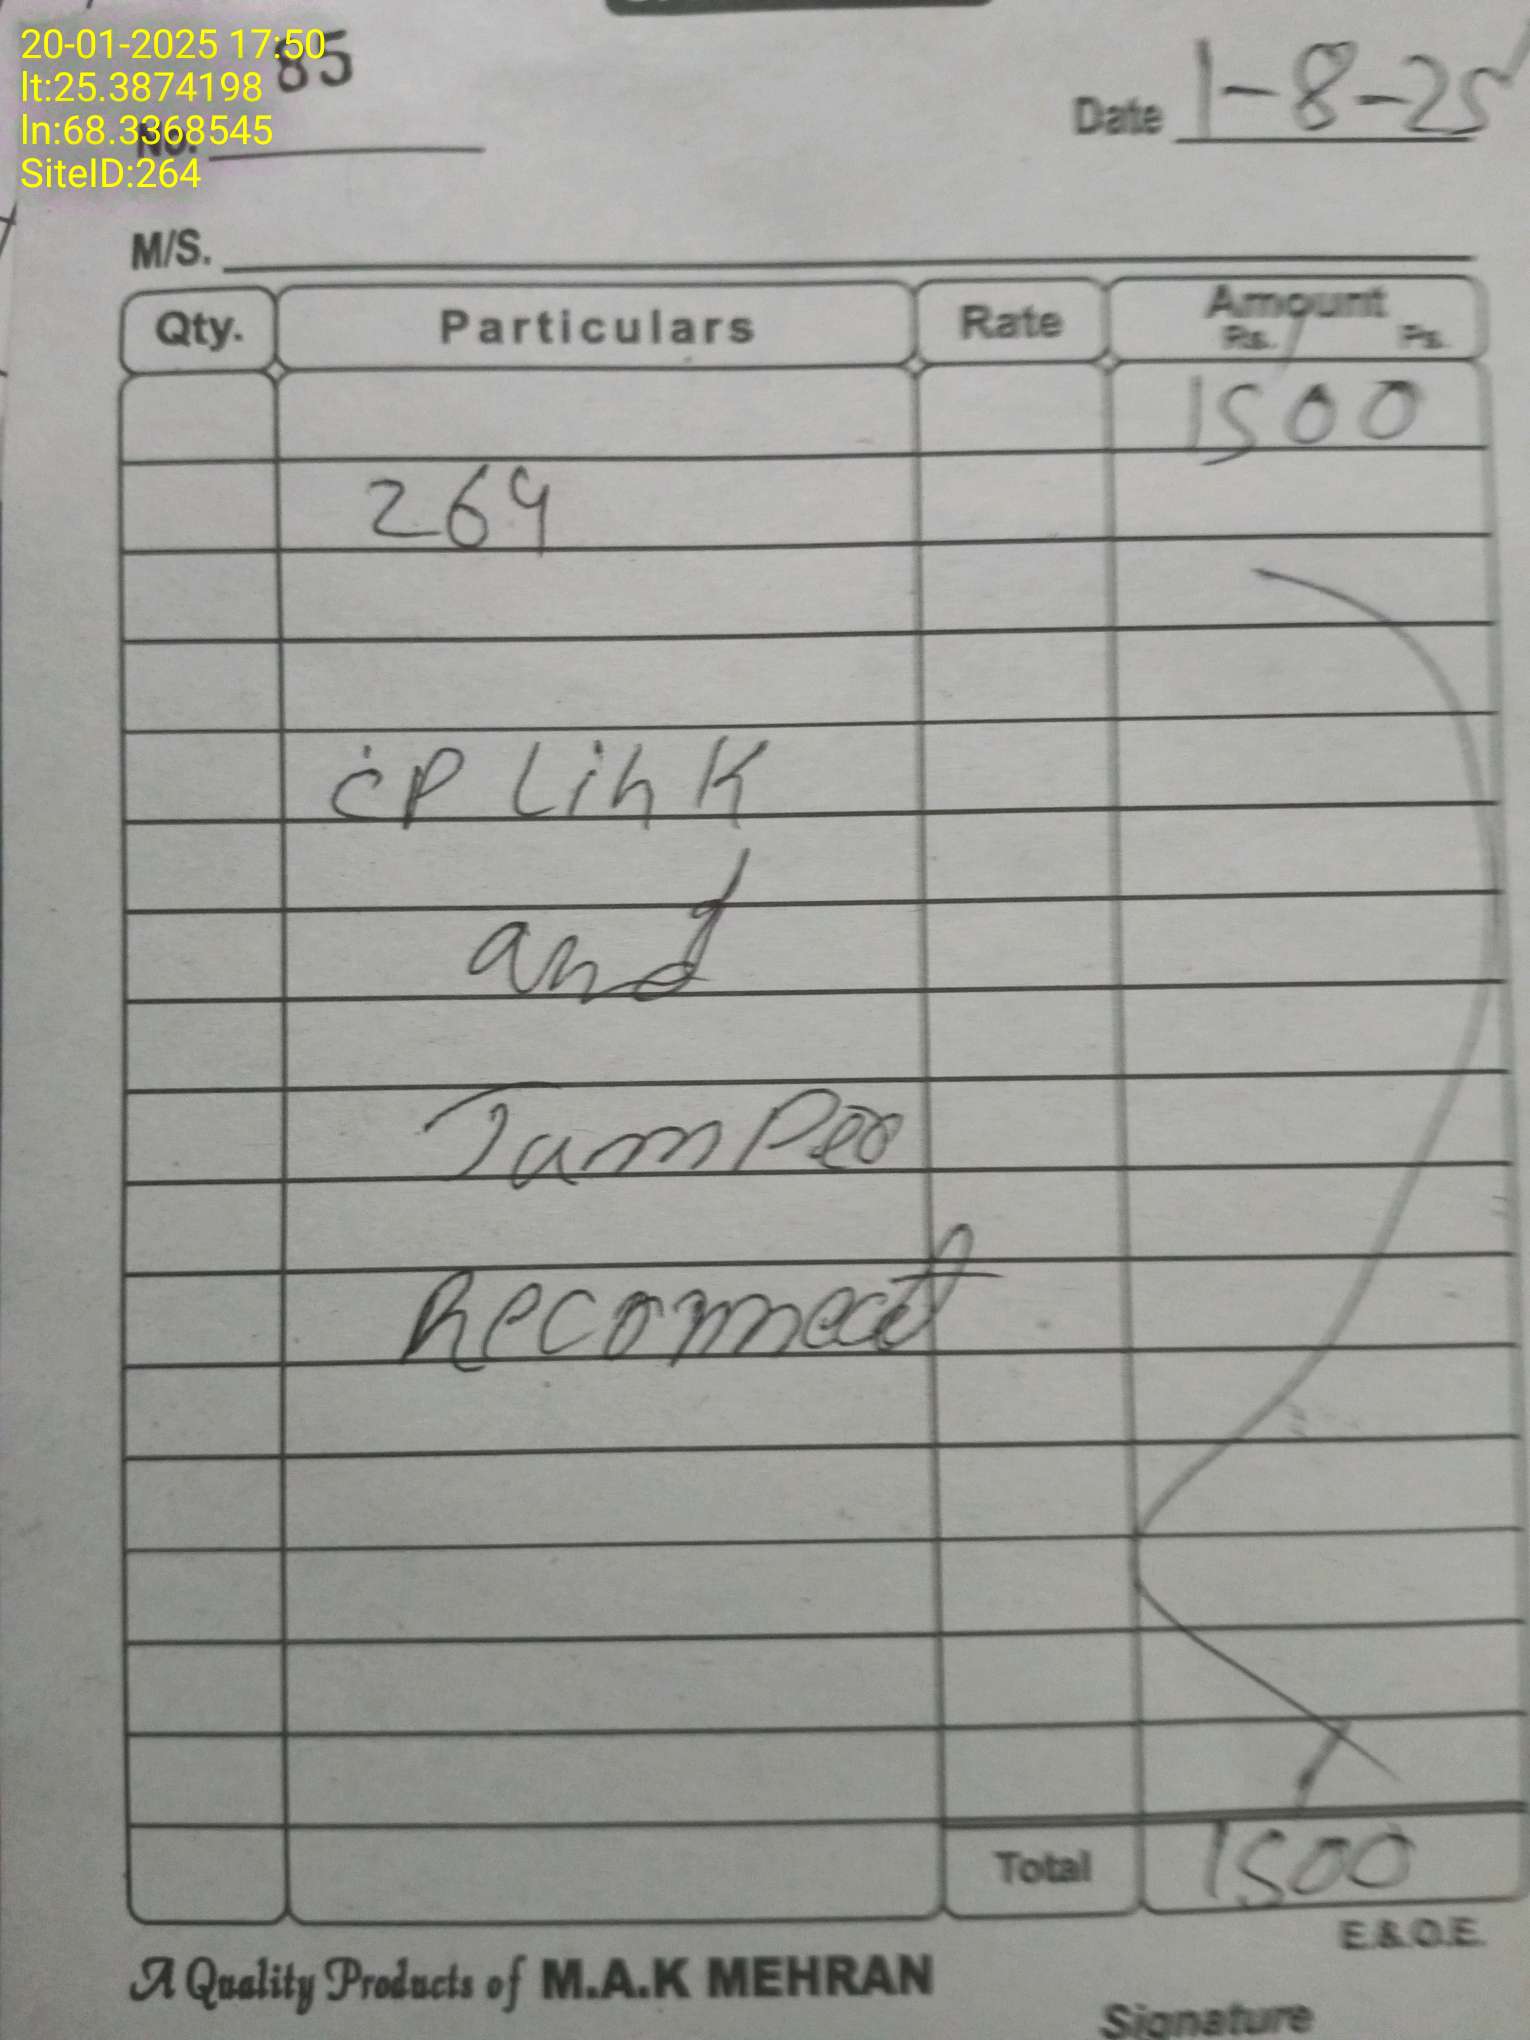 20-01-2025 17:50
lt:25.3874198
ln:68.3368545
SiteID:264
85
No.
Date 1-8-25
M/S.
Qty. Particulars Rate Amount
Rs. Ps.
1500
264
CP Link
and
Jumper
Reconnect
Total 1500
E.&.O.E.
A Quality Products of M.A.K MEHRAN
Signature